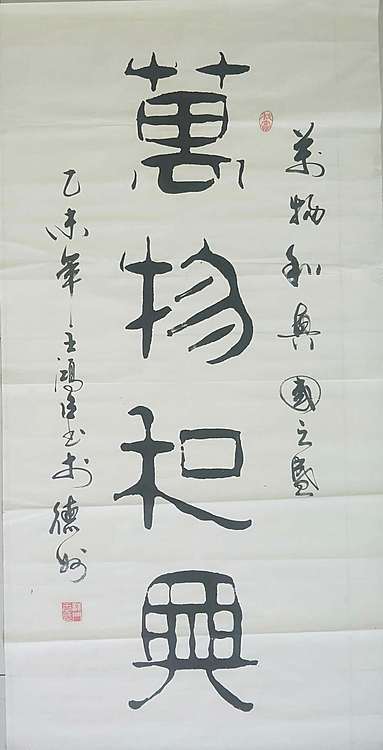 萬物和興國之盛
萬物和興
乙未年王鴻書於德州